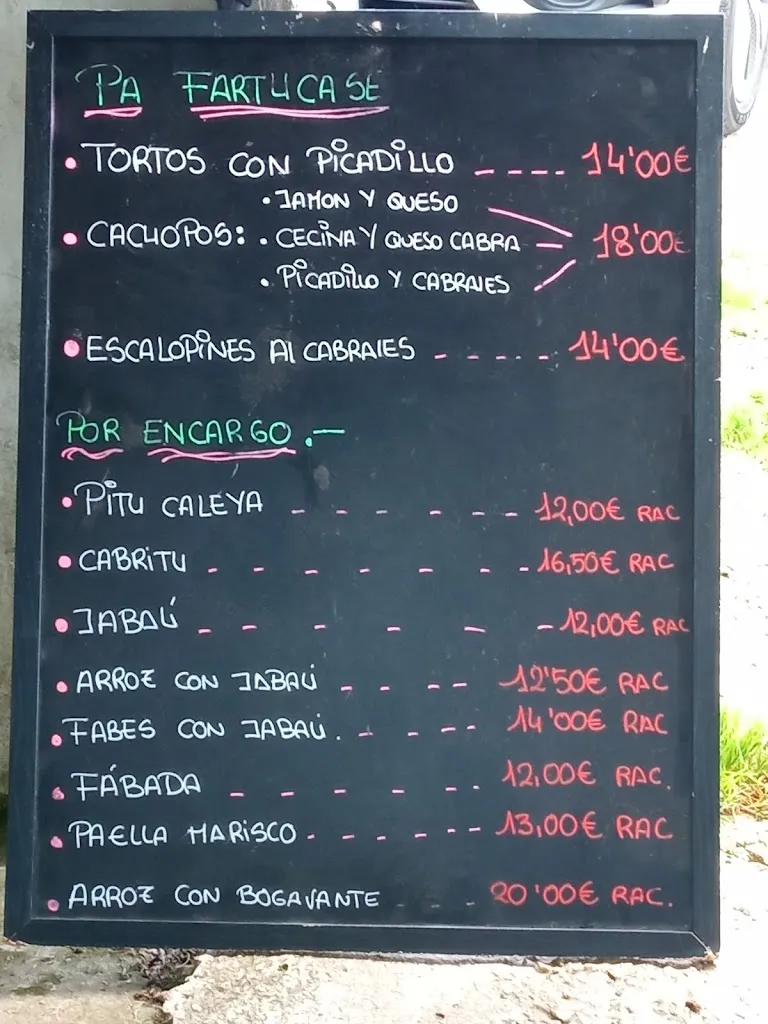 PA FARTUCASE
• TORTOS CON PICADILLO ---- 14'00€
• JAMON Y QUESO
• CACHOPOS: • CECINA Y QUESO CABRA 18'00€
• PICADILLO Y CABRALES
• ESCALOPINES AL CABRALES ----- 14'00€
POR ENCARGO.—
• PITU CALEYA ------ 12,00€ RAC
• CABRITU ------- 16,50€ RAC
• JABALÍ ------ 12,00€ RAC
• ARROZ CON JABALÍ ---- 12'50€ RAC
• FABES CON JABALÍ. ---- 14'00€ RAC
• FÁBADA ------ 12,00€ RAC.
• PAELLA MARISCO ------ 13,00€ RAC
• ARROZ CON BOGAVANTE --- 20'00€ RAC.